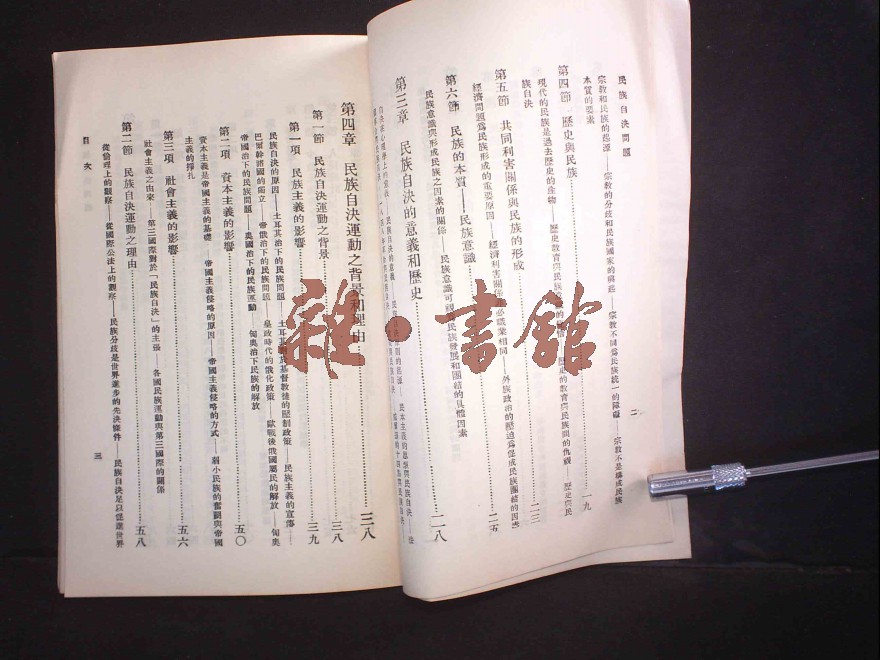 民族自決問題
二
宗教和民族的起源——宗教的分歧和民族國家的興趣——宗教不同爲民族統一的障礙——宗教不是構成民族
本質的要素
第四節 歷史與民族……一九
現代的民族是過去歷史的產物——歷史教育與民族——歷史的教育與民族間的仇視——歷史與民
族自決
第五節 共同利害關係與民族的形成……二三
經濟問題爲民族形成的重要原因——經濟利害關係不必職業相同——外族政治的壓迫爲促成民族團結的因素
第六節 民族的本質——民族意識……二五
民族意識與形成民族之因素的關係——民族意識可視爲民族發展和團結的具體因素
第三章 民族自決的意義和歷史……二八
第四章 民族自決運動之背景和理由……三八
第一節 民族自決運動之背景……三八
第一項 民族主義的影響……三九
民族自決的原因——土耳其治下的民族問題——土耳其對基督教徒的壓制政策——民族主義的宣傳——
巴爾幹諸國的獨立——帝俄治下的民族問題——皇政時代的俄化政策——歐戰後俄國屬民的解放——匈奧
帝國治下的民族問題——奧國治下的民族運動——匈奧治下民族的解放
第二項 資本主義的影響……五〇
資本主義是帝國主義的基礎——帝國主義侵略的原因——帝國主義侵略的方式——弱小民族的奮鬬與帝國
主義的掙扎
第三項 社會主義的影響……五六
社會主義之由來——第三國際對於「民族自決」的主張——各國民族運動與第三國際的關係
第二節 民族自決運動之理由……五八
從倫理上的觀察——從國際公法上的觀察——民族分歧是世界進步的先決條件——民族自決足以促進世界
目次
三
雜·書館